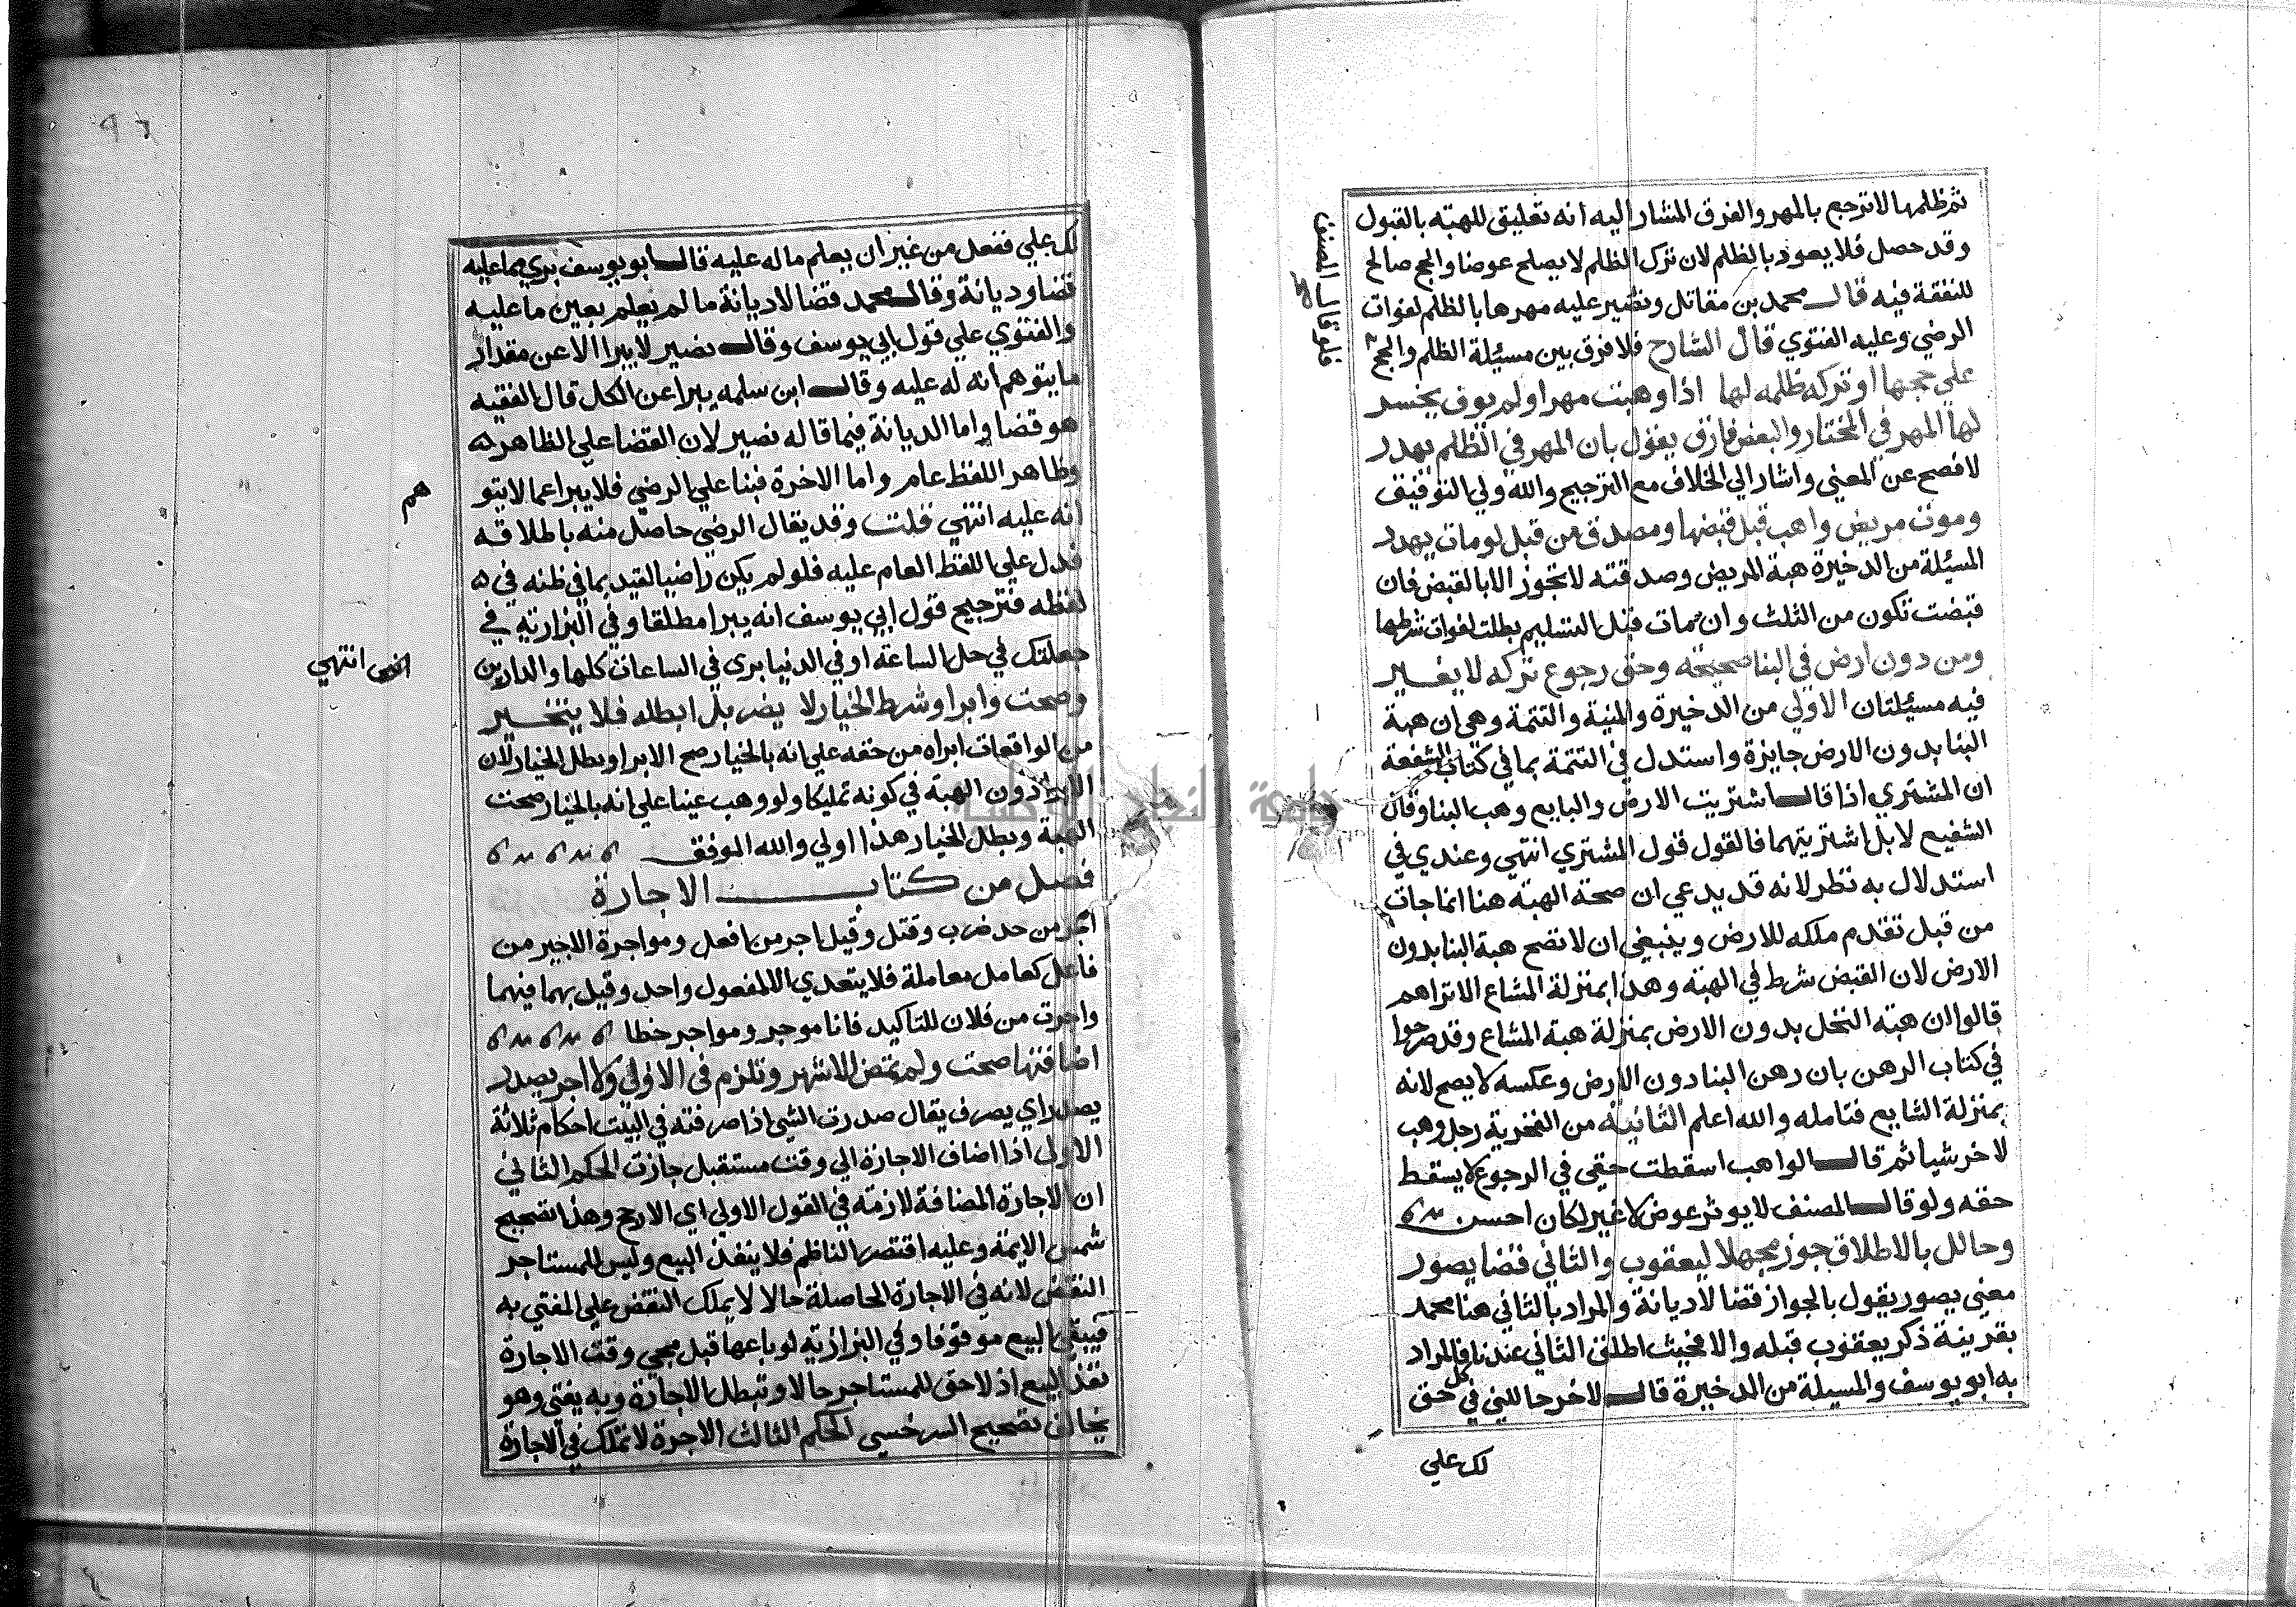 ثم ظلمها لا ترجع بالمهر والفرق المشار اليه انه تعليق للهبة بالقبول
وقد حصل فلا يعود بالظلم لان ترك الظلم لا يصلح عوضا والحج صالح
للنفقة فيه قال محمد بن مقاتل ونصير عليه مهرها بالظلم لفوات
الرضي وعليه الفتوي قال الشارح فلا فرق بين مسئلة الظلم والحج
فلو قال المصنف
علي حجها او تركه ظلمه لها اذا وهبت مهرا ولم يوف يخسر
لها المهر في المختار والبعض فارق يقول بان المهر في الظلم يهدر
لا فصح عن المعني واشار الي الخلاف مع الترجيح والله ولي التوفيق
وموت مريض واهب قبل قبضها ومصدق من قبل لو مات يهدر
المسئلة من الدخيرة هبة المريض وصدقته لا تجوز الا بالقبض فان
قبضت تكون من الثلث وان مات قبل التسليم بطلت لفوات شرطها
ومن دون ارض في البنا صحيحة وحق رجوع تركه لا يغير
فيه مسئلتان الاولي من الدخيرة والمنية والتتمة وهي ان هبة
البنا بدون الارض جايزة واستدل في التتمة بما في كتاب الشفعة
ان المشتري اذا قال اشتريت الارض والبايع وهب البنا وقال
الشفيع لا بل اشتريتهما فالقول قول المشتري انتهي وعندي في
استدلال به نظر لانه قد يدعي ان صحة الهبة هنا انما جات
من قبل تقدم ملكه للارض وينبغي ان لا تصح هبة البنا بدون
الارض لان القبض شرط في الهبة وهذا بمنزلة المشاع الا تراهم
قالوا ان هبة النخل بدون الارض بمنزلة هبة المشاع وقد صرحوا
في كتاب الرهن بان رهن البنا دون الارض وعكسه لا يصح لانه
بمنزلة الشايع فتامله والله اعلم الثانية من رجل وهب
لاخر شيا ثم قال الواهب اسقطت حقي في الرجوع لا يسقط
حقه ولو قال المصنف لا يوثر عوض لا غير لكان احسن
وحالل بالاطلاق جوز مجهلا ليعقوب والثاني قضا يصور
معني يصور يقول بالجواز قضا لا ديانة والمراد بالثاني هنا محمد
بقرينة ذكر يعقوب قبله والا فحيث اطلق الثاني عندنا فالمراد
به ابو يوسف والمسيلة من الدخيرة قال لاخر حاللني في كل حق
لك علي
لك علي ففعل من غير ان يعلم ماله عليه قال ابو يوسف بري مما عليه
قضا وديانة وقال محمد قضا لا ديانة ما لم يعلم بعين ما عليه
والفتوي علي قول ابي يوسف وقال نصير لا يبرا الا عن مقدار
ما يتوهم انه له عليه وقال ابن سلمه يبرا عن الكل قال الفقيه
هو قضا واما الديانة فيما قاله نصير لان القضا علي الظاهر
وظاهر اللفظ عام واما الاخرة فبنا علي الرضي فلا يبرا عما لا يتو
هم
انه عليه انتهي قلت وقد يقال الرضي حاصل منه باطلاقه
فدل علي اللفظ العام عليه فلو لم يكن راضيا لقيد بما في ظنه في
لفظه فترجيح قول ابي يوسف انه يبرا مطلقا وفي البزازية في
جعلتك في حل الساعة او في الدنيا بري في الساعات كلها والدارين
انتهي
وصحت وابرا وشرط الخيار لا يضر بل ابطله فلا يتخير
من الواقعات ابراه من حقه علي انه بالخيار صح الابرا وبطل الخيار لان
الابرا دون الهبة في كونه تمليكا ولو وهب عينا علي انه بالخيار صحت
الهبة وبطل الخيار هذا اولي والله الموفق
فصل من كتاب الاجارة
اجر من حد ضرب وقتل وقيل اجر من افعل ومواجرة الاجير من
فاعل كعامل معاملة فلا يتعدي الا لمفعول واحد وقيل بهما فيهما
واجرت من فلان للتاكيد فانا موجر ومواجر خطا
اضافتها صحت ولم تمض الاشهر وتلزم في الاولي ولا اجر يصدر
يصدر اي يصرف يقال صدرت الشي اذا صرفته في البيت احكام ثلاثة
الاولي اذا اضاف الاجارة الي وقت مستقبل جازت الحكم الثاني
ان الاجارة المضافة لازمة في القول الاولي اي الارجح وهذا تصحيح
شمس الايمة وعليه اقتصر الناظم فلا ينفذ البيع وليس للمستاجر
النقض لانه في الاجارة الحاصلة حالا لا يملك النقض علي المفتي به
فيبقي البيع موقوفا وفي البزازيه لو باعها قبل مجي وقت الاجارة
نفذ البيع اذ لا حق للمستاجر حالا وتبطل الاجارة وبه يفتي وهو
يخالف تصحيح السرخسي الحكم الثالث الاجرة لا تملك في الاجارة
جامعة النجاح الوطنية